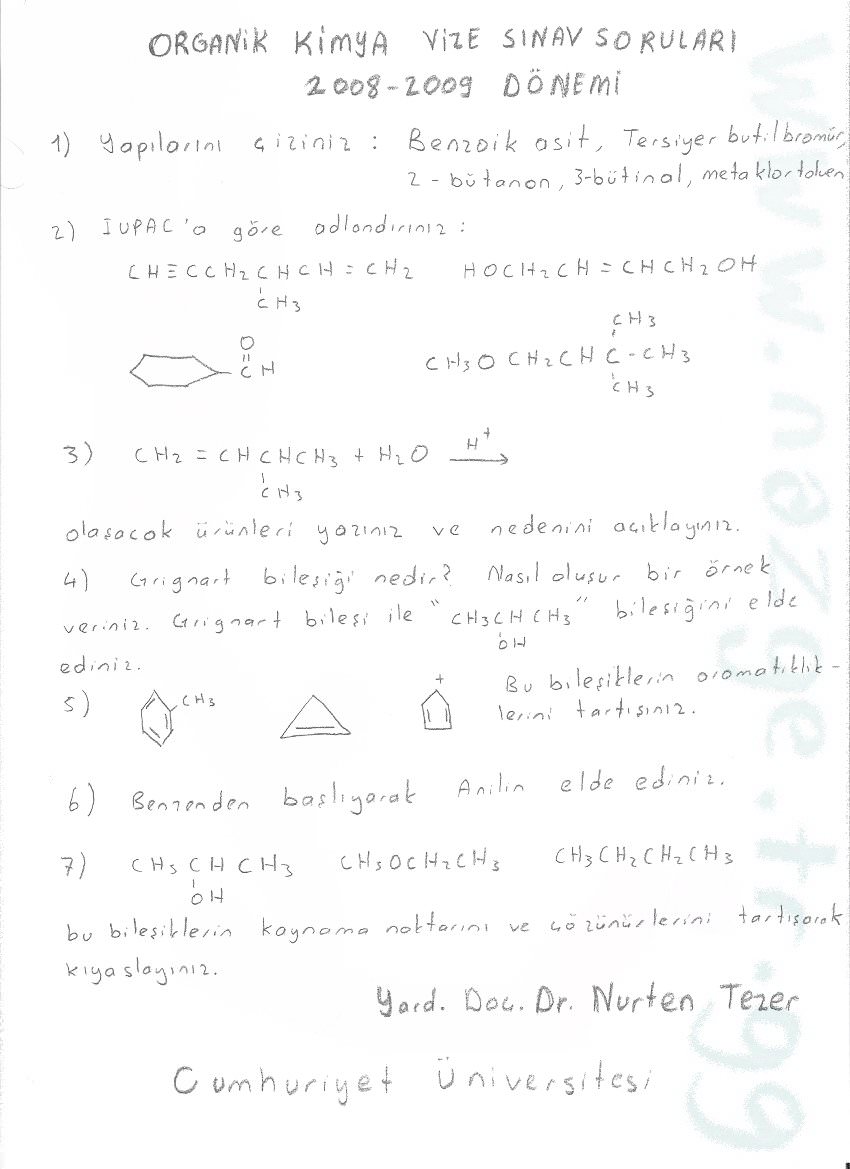 ORGANİK KİMYA VİZE SINAV SORULARI
2008-2009 DÖNEMİ
1) Yapılarını çiziniz : Benzoik asit, Tersiyer butilbromür,
2 - bütanon, 3-bütinal, metaklortoluen
2) IUPAC'a göre adlandırınız :
CH≡CCH2CHCH=CH2 HOCH2CH=CHCH2OH
CH3
CH3
O
CH
CH3OCH2CHC-CH3
CH3
3) CH2=CHCHCH3+H2O H+
CH3
olaşacak ürünleri yazınız ve nedenini açıklayınız.
4) Grignart bileşiği nedir? Nasıl oluşur bir örnek
veriniz. Grignart bileşi ile "CH3CHCH3" bileşiğini elde
OH
ediniz.
5) CH3 + Bu bileşiklerin aromatiklik-
lerini tartışınız.
6) Benzenden başlıyarak Anilin elde ediniz.
7) CH3CHCH3 CH3OCH2CH3 CH3CH2CH2CH3
OH
bu bileşiklerin kaynama noktarını ve çözünürlerini tartışarak
kıyaslayınız.
Yard. Doç. Dr. Nurten Tezer
Cumhuriyet Üniversitesi
www.nezge.tr.gg